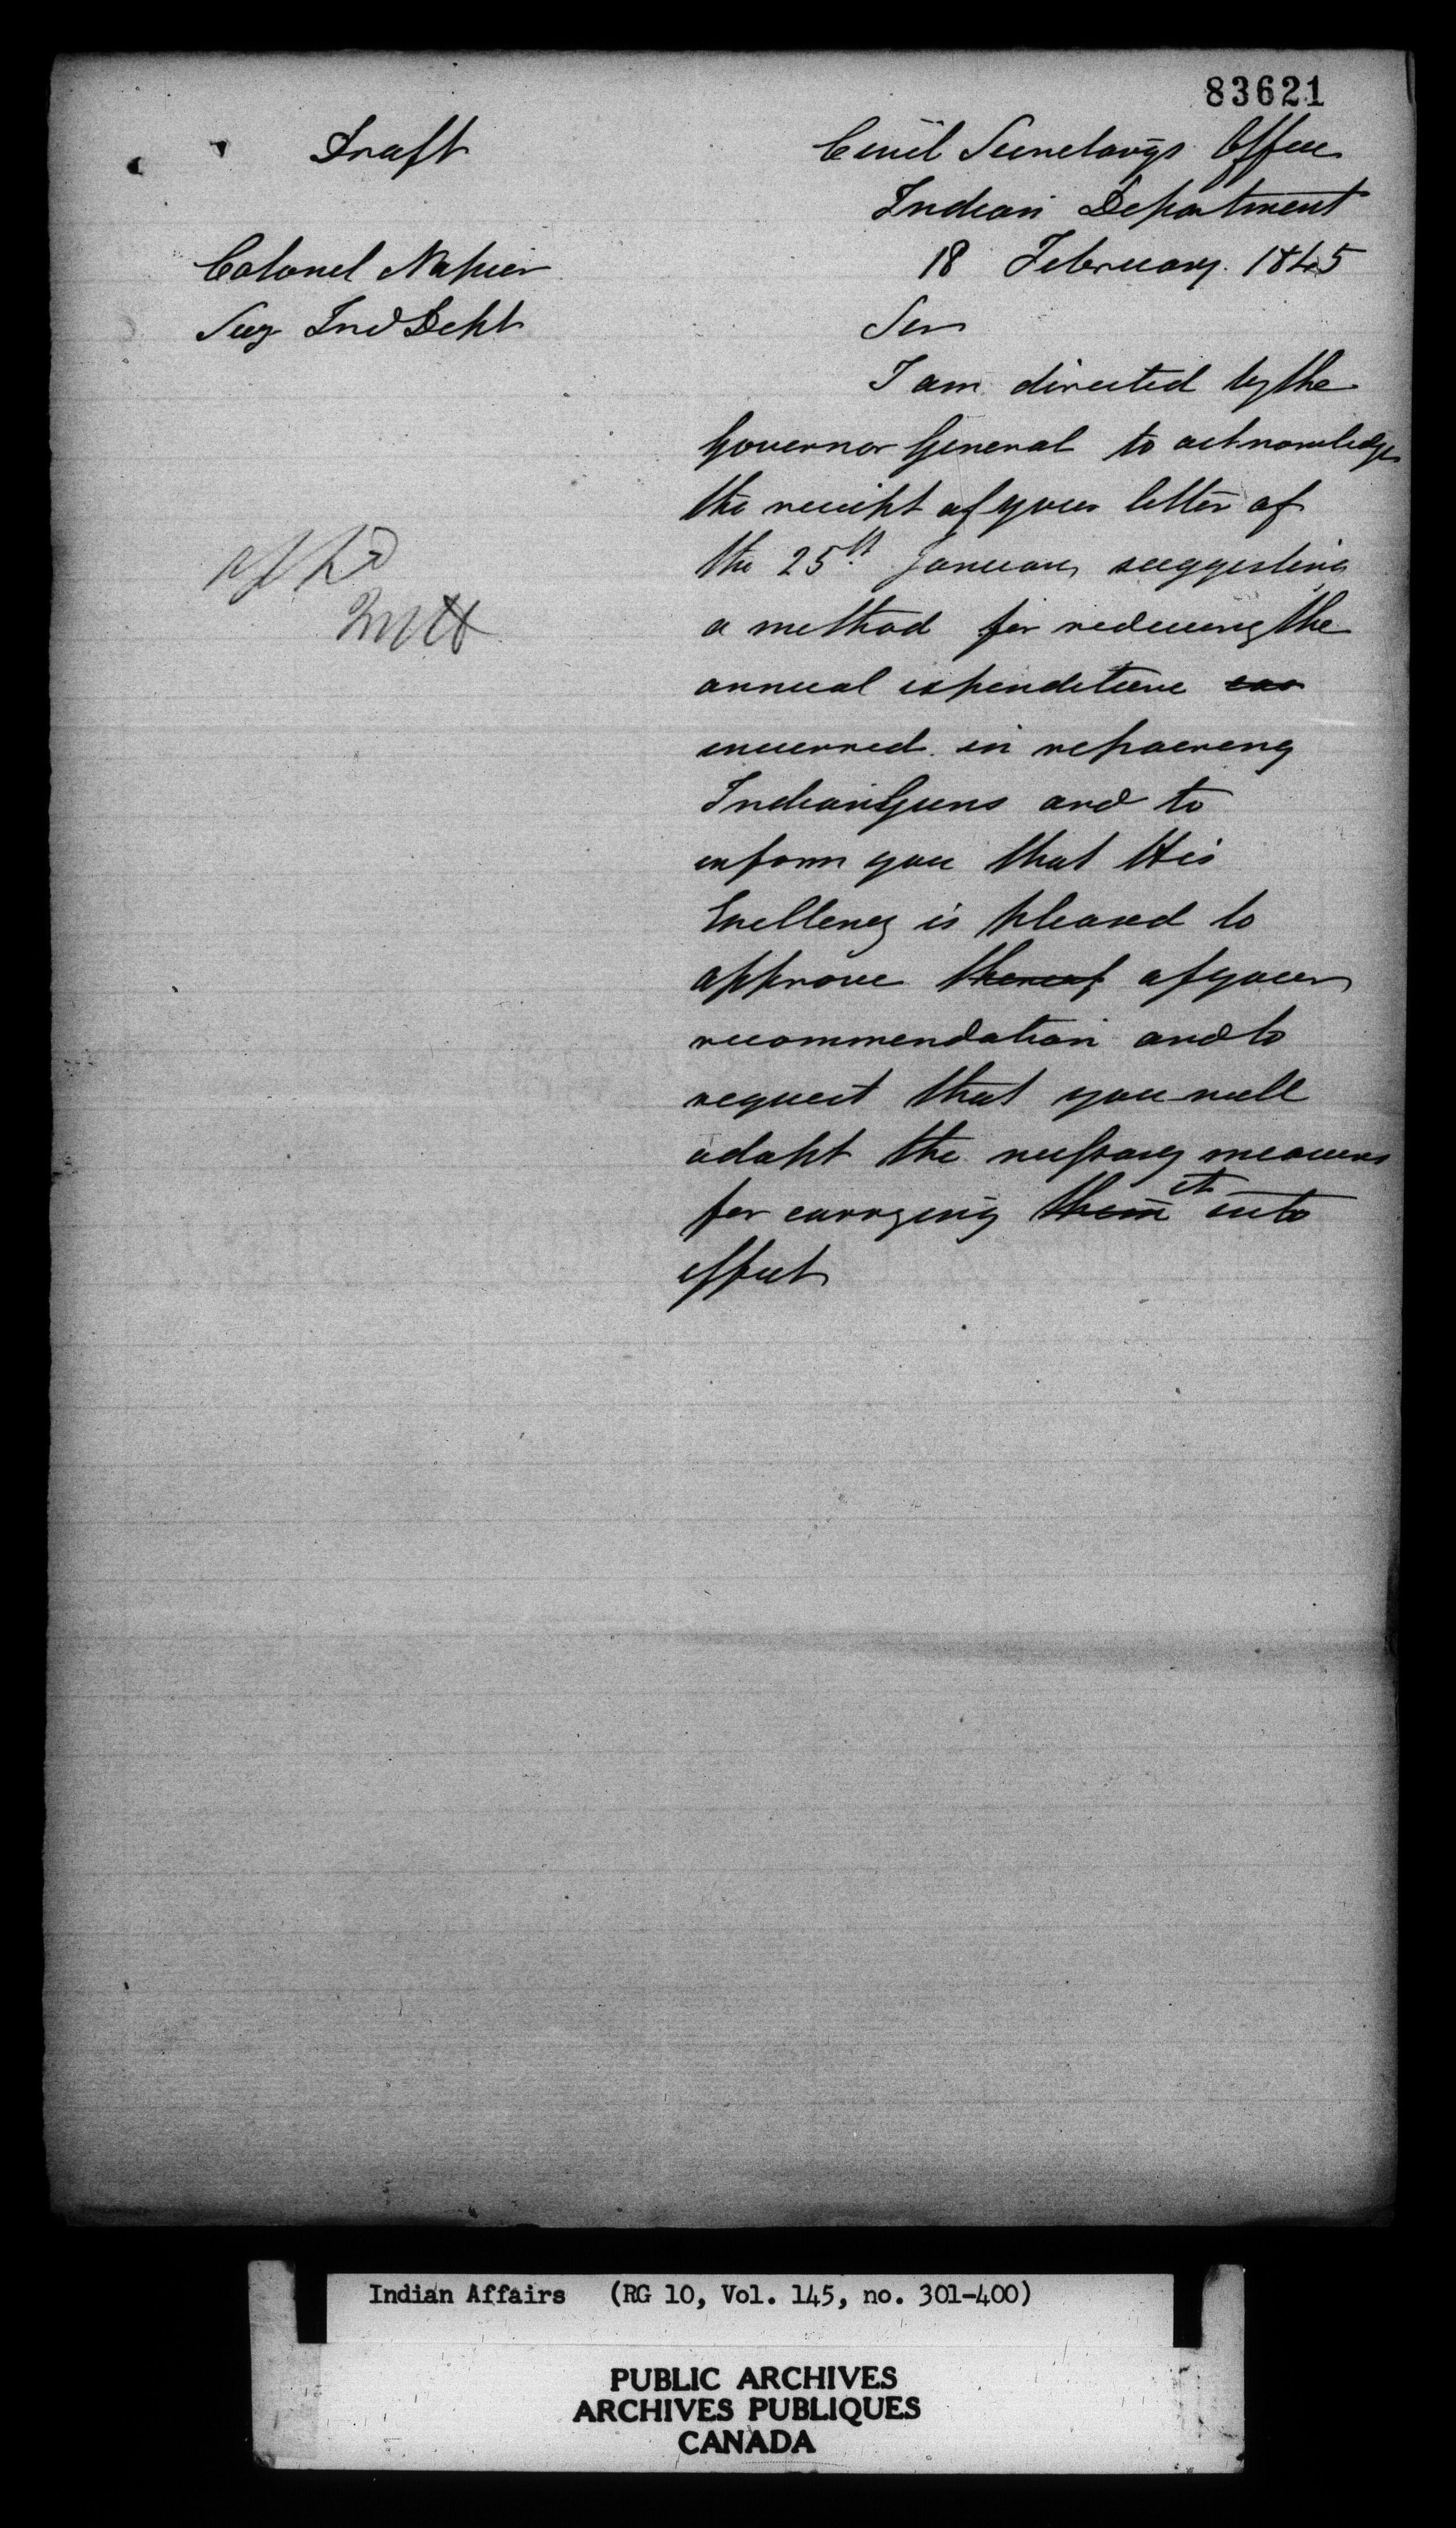 83621
Draft
Civil Secretary's Office
Indian Department
18 February 1845
Colonel Napier
Secy Ind Dept
Sir
I am directed by the
Governor General to acknowledge
the receipt of your letter of
the 25th January suggesting
a method for reducing the
annual expenditure
incurred in repairing
Indian Guns and to
inform you that His
Excellency is pleased to
approve thereof of your
recommendation and to
request that you will
adopt the necessary measures
for carrying them it into
effect
Indian Affairs (RG 10, Vol. 145, no. 301-400)
PUBLIC ARCHIVES
ARCHIVES PUBLIQUES
CANADA